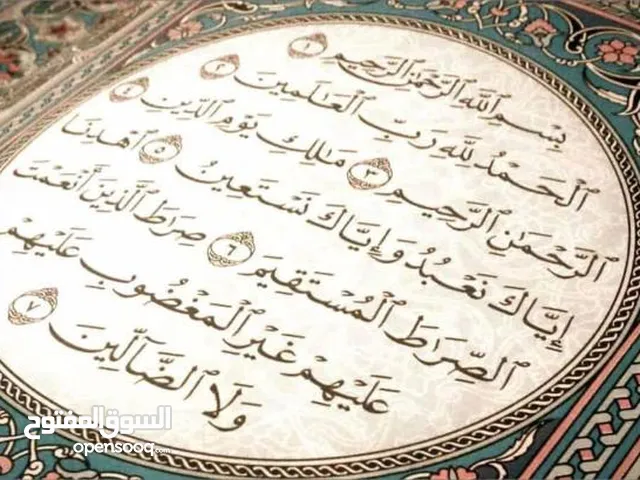 بِسْمِ ٱللَّهِ ٱلرَّحْمَٰنِ ٱلرَّحِيمِ ١
ٱلْحَمْدُ لِلَّهِ رَبِّ ٱلْعَٰلَمِينَ ٢
ٱلرَّحْمَٰنِ ٱلرَّحِيمِ ٣ مَٰلِكِ يَوْمِ ٱلدِّينِ ٤
إِيَّاكَ نَعْبُدُ وَإِيَّاكَ نَسْتَعِينُ ٥ ٱهْدِنَا
ٱلصِّرَٰطَ ٱلْمُسْتَقِيمَ ٦ صِرَٰطَ ٱلَّذِينَ أَنْعَمْتَ
عَلَيْهِمْ غَيْرِ ٱلْمَغْضُوبِ عَلَيْهِمْ
وَلَا ٱلضَّآلِّينَ ٧
السوق المفتوح
opensooq.com